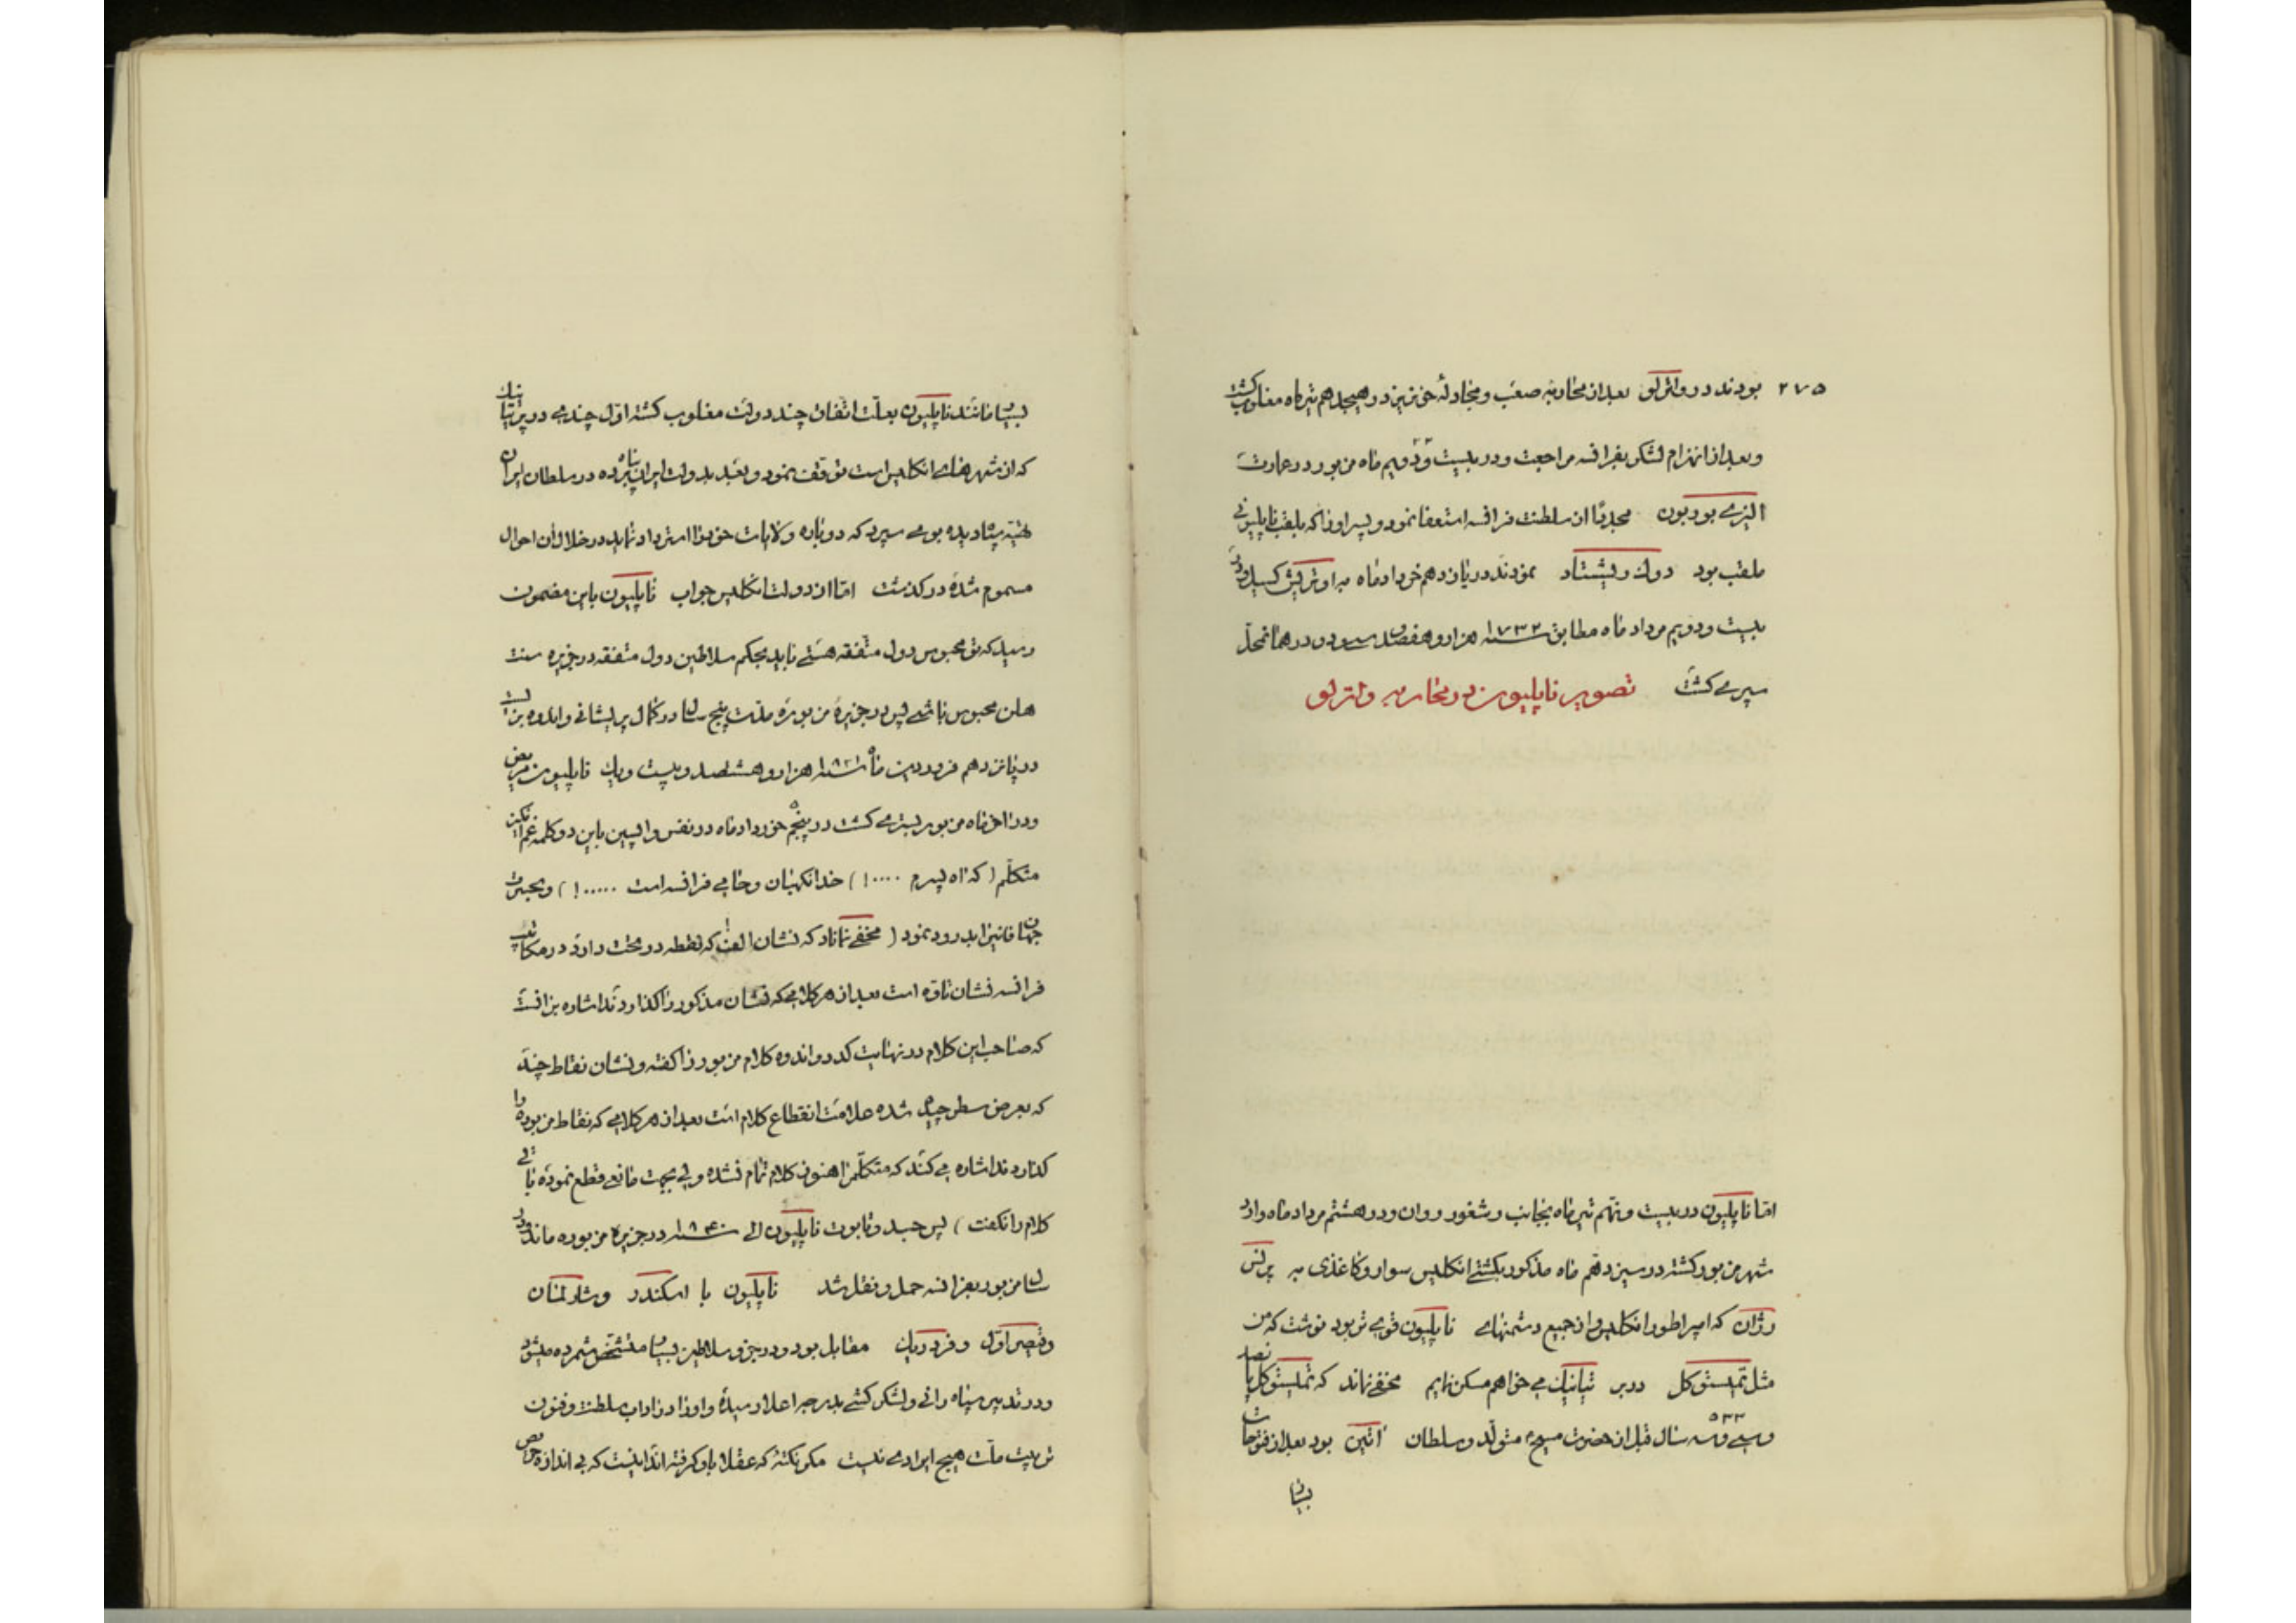 ۲۷۵ بودند در واترلو بعد از محاربهٔ صعب و مجادلهٔ خونریز در هیجدهم تیرماه مغلوب کشت
و بعد از انهزام لشکر بفرانسه مراجعت و در بیست و دویم ماه مزبور در عمارت
الیزی بوربون مجددًا از سلطنت فرانسه استعفا نمود و پسر او را که بلقب ناپلیونی
ملقب بود دوک ریشتاد نمودند در یازدهم خرداد ماه به اوتریش کسیل و در
بیست و دویم مرداد ماه مطابق سنه ۱۷۳۲ هزار و هفصد سی و دو در همانمحل
سپری کشت تصویر ناپلیون در محاربه واترلو
امّا ناپلیون در بیست و نهم تیرماه بجانب رشفور روان و در هشتم مرداد ماه وارد
شهر مزبور کشته در سیزدهم ماه مذکور بکشتی انکلیس سوار و کاغذی به پرنس
رژان که امپراطور انکلیس و از جمیع دشمنهای ناپلیون قوی تر بود نوشت که من
مثل تمیستوکل در بر تیانیک می خواهم مسکن نمایم مخفی نماند که تمیستوکل پانصد
و سی و سه ۵۳۳ سال قبل از حضرت مسیح متولد و سلطان اتین بود بعد از فتوحات
بسیار
بسیار مانند ناپلیون بعلّت اتّفاق چند دولت مغلوب کشته اوّل چندی در برتیانیک
که از شهرهای انکلیس است توقّف نمود و بعد بدولت ایران پناه برده در سلطان ایران
تهیّه سپاه دیده بوی سپرد که دوباره ولایات خود را استرداد نماید در خلال آن احوال
مسموم شده در کذشت امّا از دولت انکلیس جواب ناپلیون باین مضمون
رسید که تو محبوس دول متّفقه هستی باید بحکم سلاطین دول متفقه در جزیره سنت
هلن محبوس باشی پس در جزیرهٔ مزبوره مدّت پنج سال در کمال پریشانی و اندوه بزیست
در پانزدهم فروردین ماه سنه ۱۸۲۱ هزار و هشتصد و بیست و یک ناپلیون مریض
و در اخر ماه مزبور بستری کشت در پنجم خرداد ماه در نفس واپسین باین دو کلمه غم انکیز
متکلّم ( که اه پسرم ....! ) خدا نکهبان و حامی فرانسه است .....! ) و بحسرت
جهان فانیرا بدرود نمود ( مخفی نماناد که نشان الف که نقطه در تحت دارد در مکاتیب
فرانسه نشان تاوّه است بعد از هر کلامی که نشان مذکور را کذارند اشاره بر آنست
که صاحب این کلام در نهایت کدر و اندوه کلام مزبور را کفته و نشان نقاط چند
که بعرض سطر چیده شده علامت انقطاع کلام است بعد از هر کلامی که نقاط مزبوره را
کذارند اشاره می کند که متکلّم را هنوز کلام تمام نشده ولی بجهت مانعی قطع نموده باقی
کلام را نکفت ) پس جسد و تابوت ناپلیون الی سنه ۱۸۴۰ در جزیرهٔ مزبوره ماند و در
سال مزبور بفرانسه حمل و نقل شد ناپلیون با اسکندر و شارلمان
و قیصر اوّل و فردریک مقابل بود و در جزو سلاطین بسیار متشخّص شمرده میشود
و در تدبیر سپاه رانی و لشکر کشی بدرجهٔ اعلا رسیده و او را در اداب سلطنت و فنون
تربیت ملّت هیچ ایرادی نیست مکر نکتهٔ که عقلا باو کرفته اند اینست که بی اندازه حریص